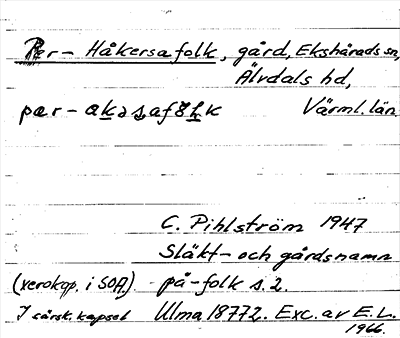 Per-Håkersafolk, gård, Ekshärads sn,
Älvdals hd,
Värml. län
C. Pihlström 1947
Släkt- och gårdsnamn
(xerokop. i SOA.) på -folk s. 2.
I särsk. kapsel Ulma 18772. Exc. av E.L.
1966.